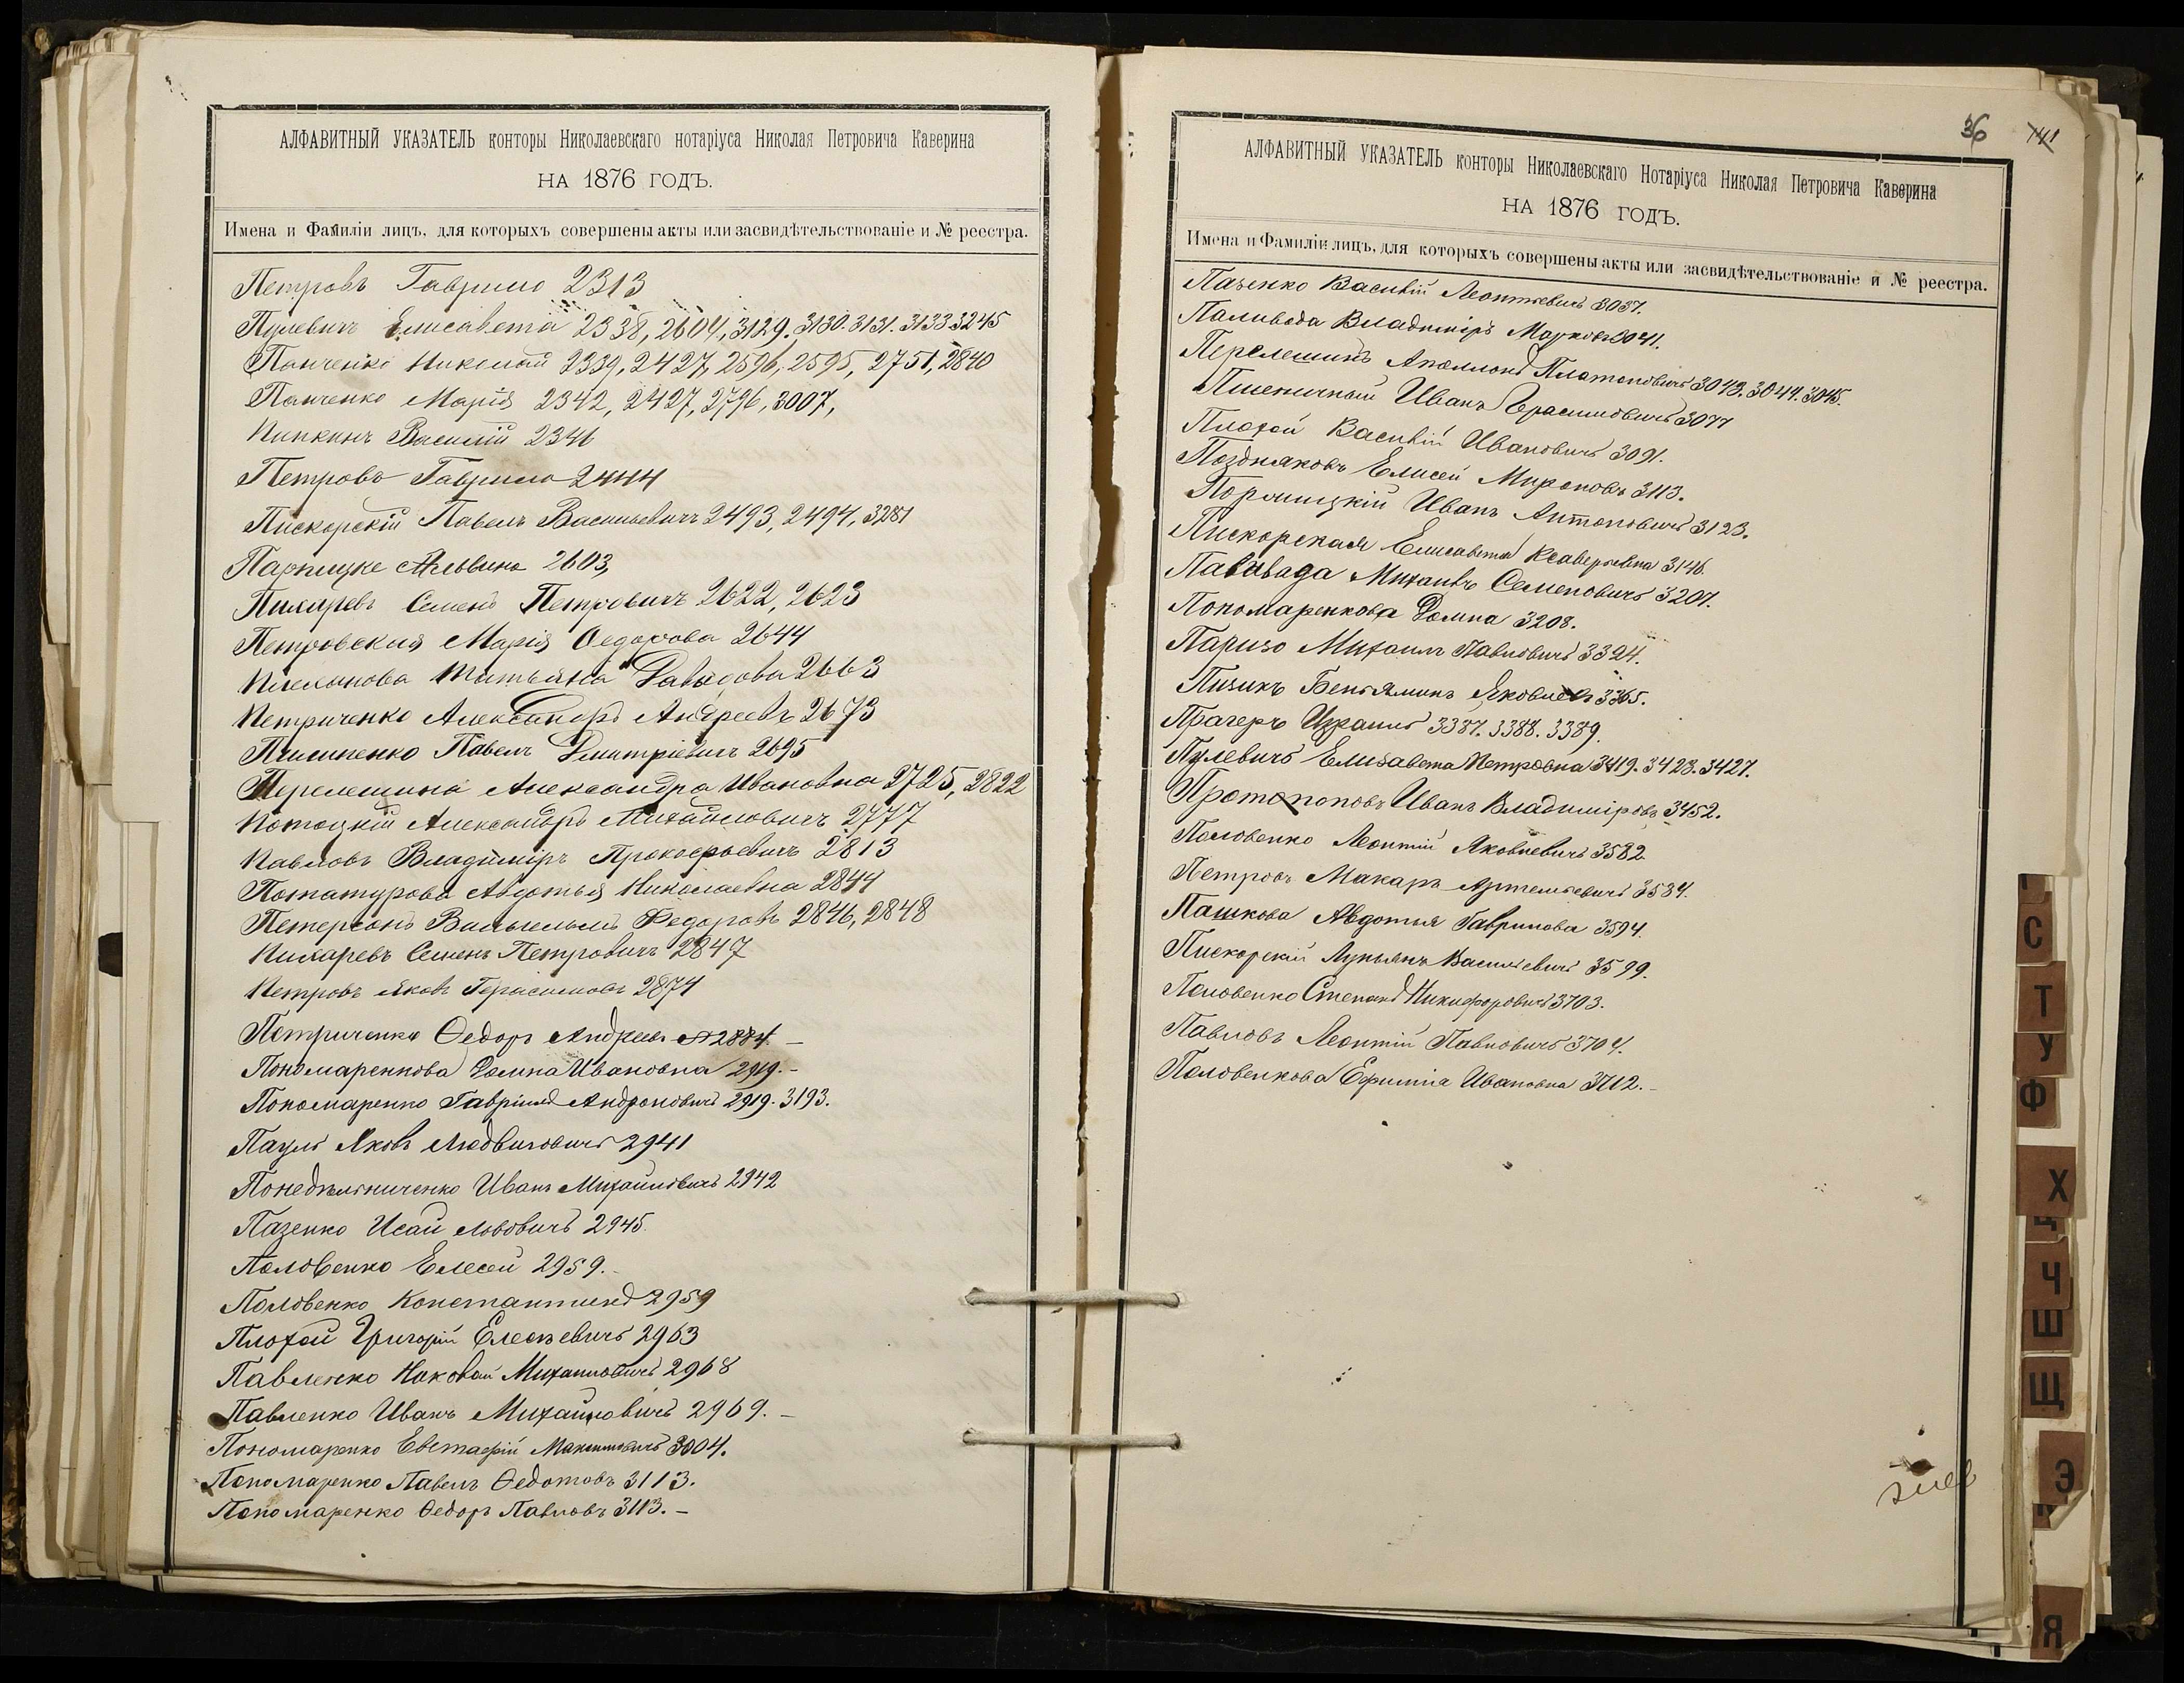 АЛФАВИТНЫЙ УКАЗАТЕЛЬ конторы Николаевскаго нотаріуса Николая Петровича Каверина
НА 1876 ГОДЪ.
Имена и Фамиліи лицъ, для которыхъ совершены акты или засвидѣтельствованіе и № реестра.
Петровъ Гаврило 2313
Пулевичъ Елисавета 2338, 2604, 3129. 3130. 3131. 3133 3245
Панченко Николай 2339, 2427, 2596, 2595, 2751, 2840
Панченко Марія 2342, 2427, 2796, 3007,
Пипкинъ Василій 2346
Петрово Гаврило 2444
Пискорскій Павелъ Васильевичъ 2493, 2494, 3281
Альвина 2603,
Пихаревъ Семенъ Петровичъ 2622, 2623
Петровская Марія Ѳедорова 2644
Татьяна Давыдова 2663
Петриченко Александръ Андреевъ 2673
Пилипенко Павелъ Дмитріевичъ 2695
Перелешина Александра Ивановна 2725, 2822
Потоцкій Александръ Михайловичъ 2777
Павловъ Владиміръ Прокофьевичъ 2813
Потатурова Авдотья Николаевна 2844
Петерсонъ Вильгельмъ Федоровъ 2846, 2848
Пихаревъ Семенъ Петровичъ 2847
Петровъ Яковъ Герасимовъ 2874
Петриченко Ѳедоръ Андреевъ 2884. –
Пономаренкова Домна Ивановна 2919. –
Пономаренко Гавріилъ Андроновичъ 2919. 3193.
Пауль Яковъ Людвиговичъ 2941
Понедѣльниченко Иванъ Михайловичъ 2942
Пазенко Исай Львовичъ 2945.
Половенко Елесей 2959. –
Половенко Константинъ 2959
Плохой Григорій Елесѣевичъ 2963
Павленко Михайловичъ 2968
Павленко Иванъ Михайловичъ 2969. –
Пономаренко Евстафій Максимовичъ 3004.
Пономаренко Павелъ Ѳедотовъ 3113.
Пономаренко Ѳедоръ Павловъ 3113. –
36 141
АЛФАВИТНЫЙ УКАЗАТЕЛЬ конторы Николаевскаго Нотаріуса Николая Петровича Каверина
НА 1876 ГОДЪ.
Имена и Фамиліи лицъ, для которыхъ совершены акты или засвидѣтельствованіе и № реестра.
Пазенко Василій Леонтьевичъ 3037.
Паливода Владиміръ Марковъ 3041.
Перелешинъ Аполлонъ Платоновичъ 3043. 3044. 3045.
Пшеничный Иванъ Герасимовичъ 3077
Плохой Василій Ивановичъ 3091.
Поздняковъ Елисей Мироновъ 3113.
Иванъ Антоновичъ 3123.
Пискорская Елисавета Ксаверьевна 3146.
Михаилъ Семеновичъ 3207.
Пономаренкова Домна 3208.
Паризо Михаилъ Павловичъ 3324.
Пизикъ Беньяминъ Яковлевъ 3365.
Прагеръ Израиль 3387. 3388. 3389.
Пулевичъ Елизавета Петровна 3419. 3423. 3427.
Протопоповъ Иванъ Владиміровъ 3452.
Половенко Леонтій Яковлевичъ 3582.
Петровъ Макаръ Артемьевичъ 3534.
Пашкова Авдотья Гаврилова 3594.
Пискорскій Лукьянъ Васильевичъ 3599.
Половенко Степанъ Никифоровичъ 3703.
Павловъ Леонтій Павловичъ 3704.
Половенкова Ефимія Ивановна 3712. –
С
Т
У
Ф
Х
Ц
Ч
Ш
Щ
Э
Я